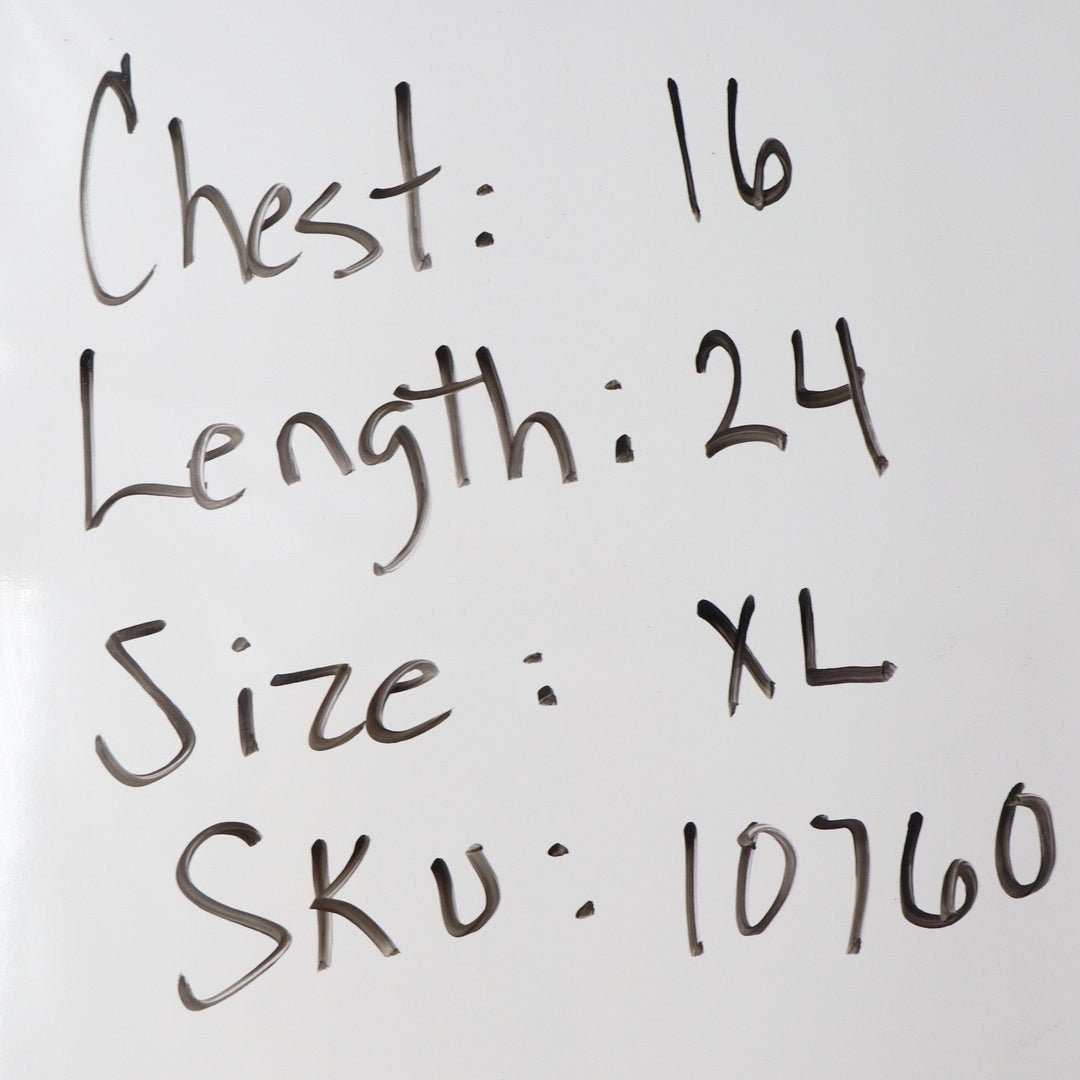 Chest: 16
Length: 24
Size: XL
SKU: 10760